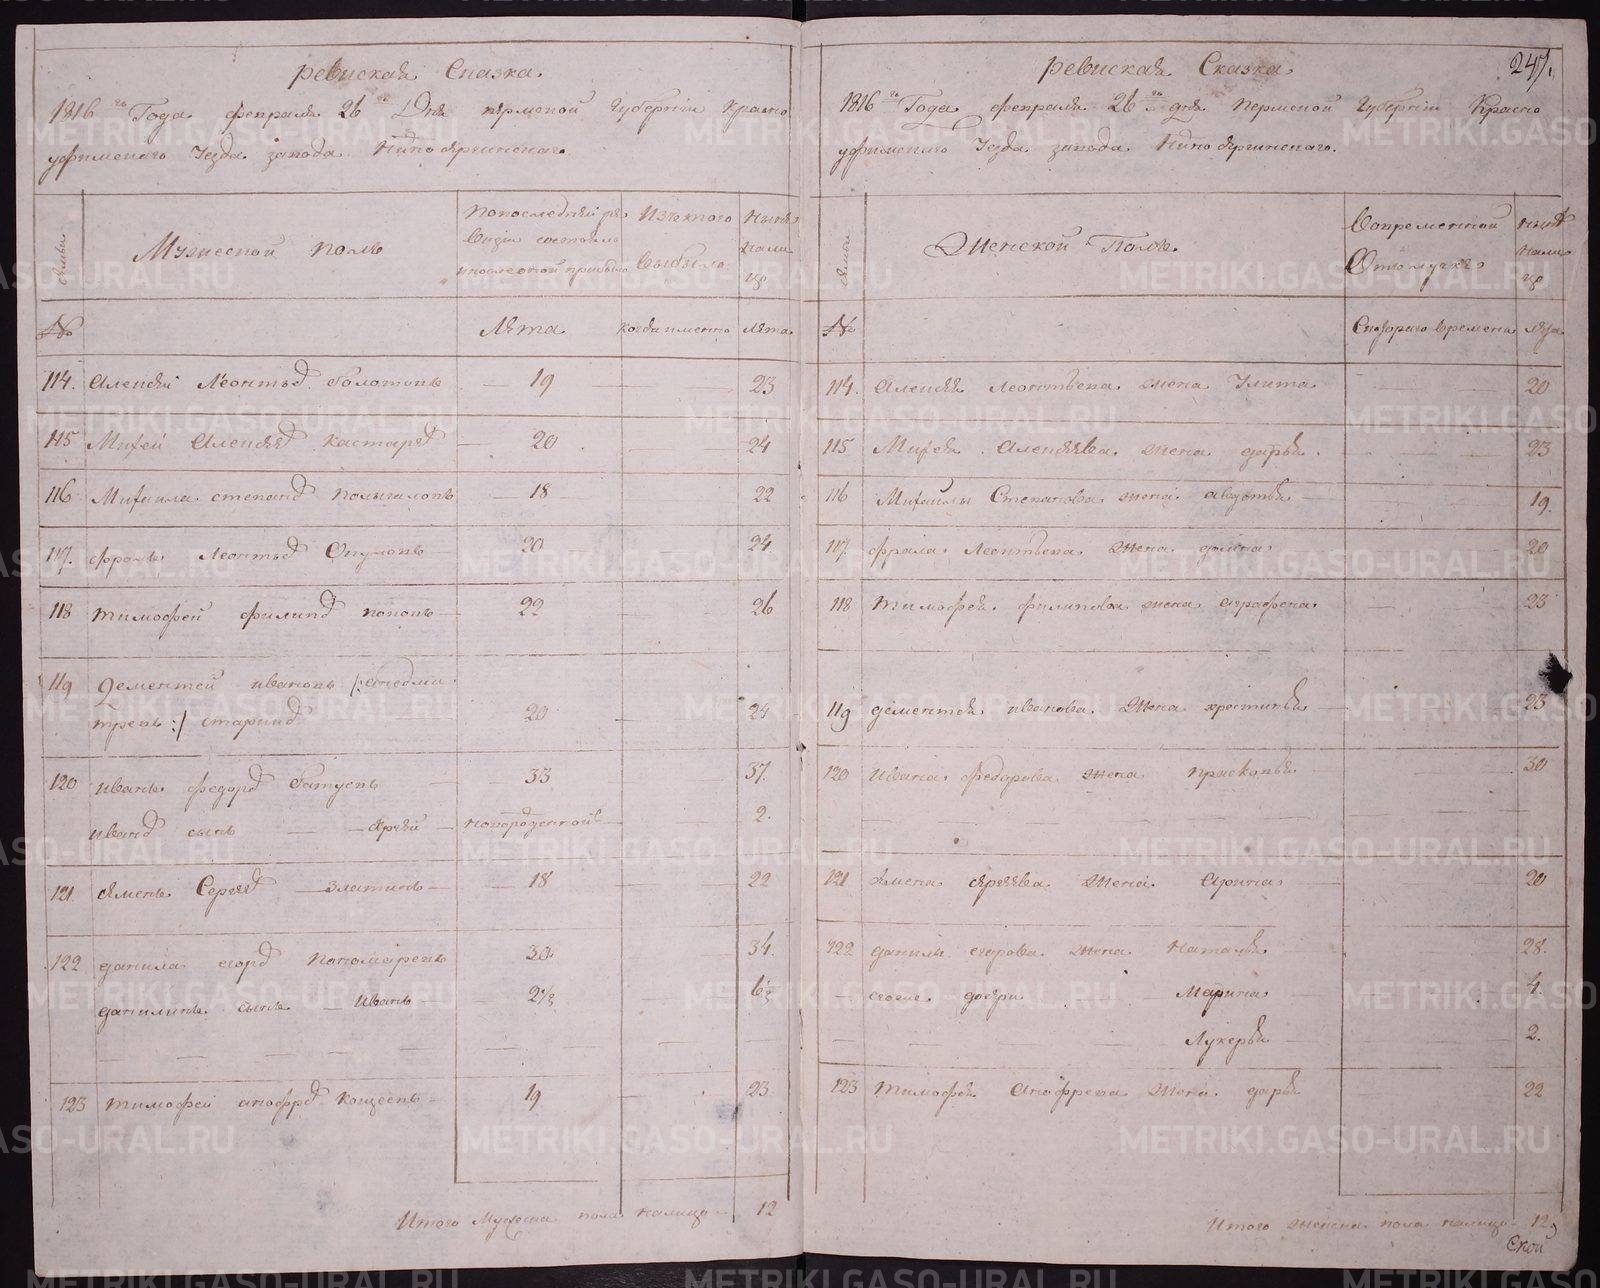 Ревиская Сказка
1816го Года февраля 26го Дня Пермской Губернии Красно
уфимскаго Уезда завода Нижно
Семьи
Мужеской полъ
По последней ре
визи состояло
и после оной прибыло
Изъ того
выбыло
Ныне
на ли
цо
№
Лета
когда именно
лета
114. Алексей Леонтьев Болотовъ 19 23
115 Михей Алексеев 20 24
116 Михаила степанов 18 22
117. Фролъ Леонтьев 20 24
118 тимофей филипов поповъ 22 26
119 Дементей ивановъ
20 24
120 иванъ федоров 33 37.
иванов сынъ новорожденной 2.
121 Сергеев 18 22
122 данила егоров Пономаревъ 30 34.
данилинъ сынъ Иванъ 2½ 6½
123 тимофей 19 23
Итого Мужеска пола налицо 12
247.
Ревиская Сказка
1816го Года февраля 26го дня Пермской Губернии Красно
уфимскаго Уезда завода Нижно
Семьи
Женской Полъ
Во временной
Отлучке
ныне
нали
цо
№
Скотораго времени
лета
114. Алексея Леонтьева жена Улита 20
115 Михея Алексеева жена дарья 23
116 Михаилы Степанова жена авдотья 19.
117. фрала Леонтьева жена 20
118 тимофея филипова жена аграфена 23
119 дементея иванова жена христинья 23
120 ивана федорова жена прасковья 30
121 жена 20
122 данилы егорова жена Наталья 28.
дочери Марина 4.
Лукерья 2.
123 Тимофея жена дарья 22
Итого женска пола налицо 12
Ской